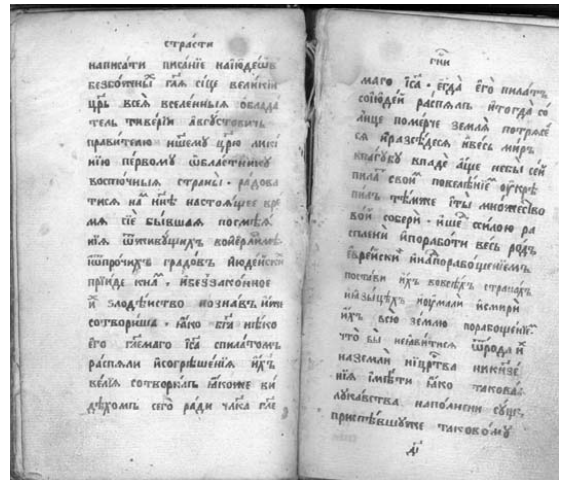 страсти
написати писаніе наіюдеѡв
безбожны гл҃я сіце великіи
цр҃ь всея̀ вселенныѧ облада
тель тиверіи а҆вгустовичь
правителю н҃шему црю лики
нїю первому ѡ҆бластнику
восточныѧ страны̀ . радова
тися на нн҃ѣ настоящее вре
мя сїе бывшая посмѣя
нїя ѿживущихъ вои҆ерл҃имѣ
ѿпрочихъ градовъ і҆юдейски
прїиде и҆беззаконное
и҆ злодѣйство познавъ и҆же
сотвориша . ꙗ҆ко бг҃а нѣко
его гл҃емаго і҆с҃а спилатомъ
распяли и҆согрѣшенїя и҆хъ
велїя сотворилъ ꙗ҆коже ви
дѣхомъ сего̀ ради чл҃ка гл҃е
гн҃и
маго і҆с҃а . е҆гда̀ е҆го̀ пилатъ
соі҆юдей распялъ и҆тогда̀ со
лнце померче земля̀ потрясе
ся и҆разсѣдеся и҆весь миръ
впагубу впадѐ а҆ще небы сей
пила свои повелѣнїе оу҆крѣ
пилъ тѣмже і҆ты̀ множество
вой собери . и҆ше ссилою ра
сплени и҆поработи весь родъ
е҆врейски и҆напорабощенїемъ
постави и҆хъ вовсѣхъ странахъ
и҆ꙗзыцѣхъ и҆оумали и҆смири
и҆хъ всю̀ землю порабощенїе
что̀ бы ненавитися ѿрода и҆
наземлѝ ницр҃тва никизе
нїя имѣти ꙗ҆ко такова
лукавства наполнени суще
приспѣвшуже таковому
д҃і